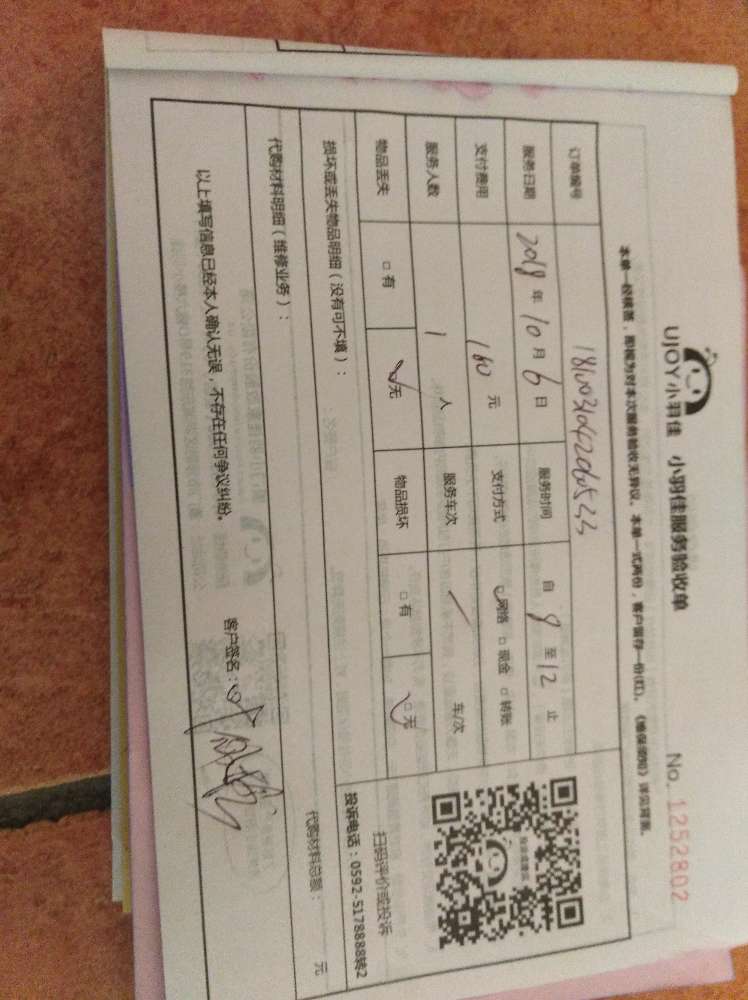 UJOY小羽佳 小羽佳服务验收单 No. 1252802
本单一经核签，即视为对本次服务验收无异议。本单一式两份，客户留存一份(红)。《维保须知》详见背面。
订单编号
服务日期 2018年10月6日 服务时间 自8至12止
支付费用 160元 支付方式 网络 □现金 □转账
服务人数 1人 服务车次 / 车/次
物品丢失 □有 无 物品损坏 □有 □无
扫码评价或投诉
投诉电话：0592-5178888转2
损坏或丢失物品明细（没有可不填）：
代购材料明细（维修业务）：
代购材料总额： 元
以上填写信息已经本人确认无误，不存在任何争议纠纷。
客户签名：